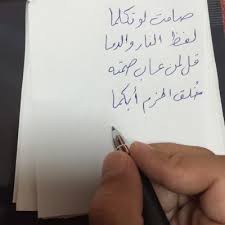 صامت لو تكلما
لفظ النار والدما
قل لمن عاب صمته
خُلق الحزم أبكما